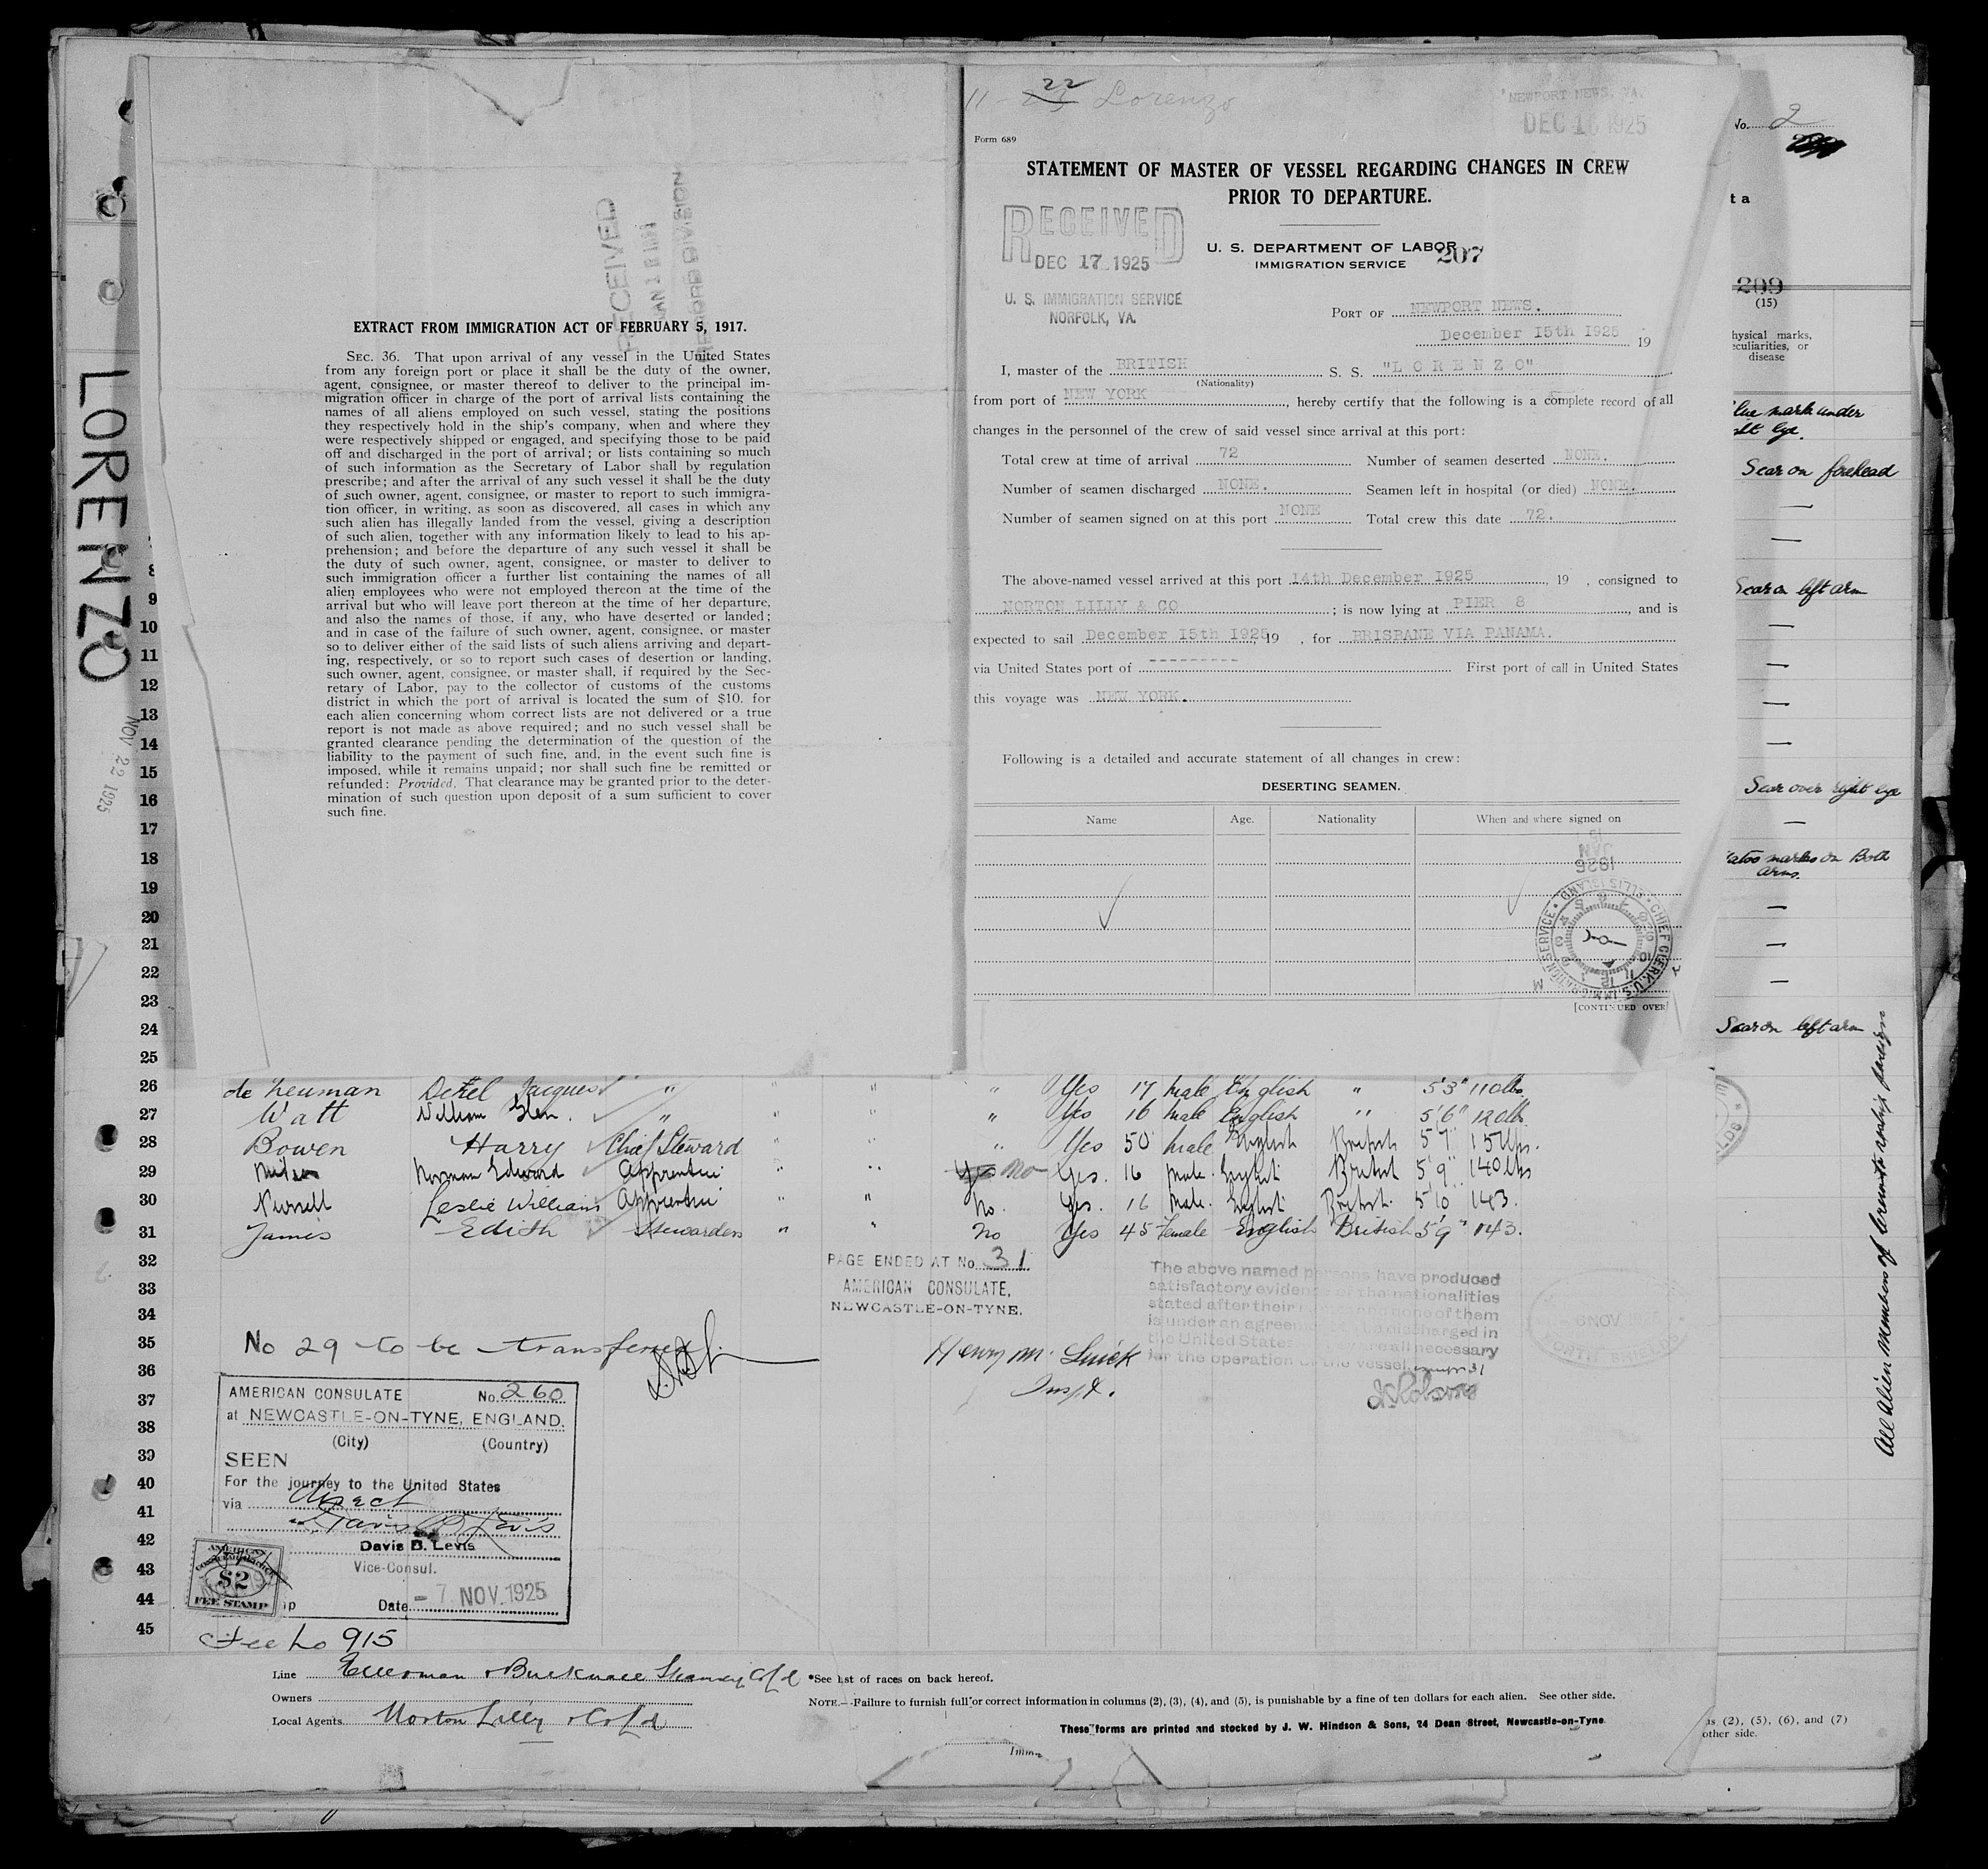 LORENZO
NOV 22 1925
EXTRACT FROM IMMIGRATION ACT OF FEBRUARY 5, 1917.
SEC. 36. That upon arrival of any vessel in the United States
from any foreign port or place it shall be the duty of the owner,
agent, consignee, or master thereof to deliver to the principal im-
migration officer in charge of the port of arrival lists containing the
names of all aliens employed on such vessel, stating the positions
they respectively hold in the ship's company, when and where they
were respectively shipped or engaged, and specifying those to be paid
off and discharged in the port of arrival; or lists containing so much
of such information as the Secretary of Labor shall by regulation
prescribe; and after the arrival of any such vessel it shall be the duty
of such owner, agent, consignee, or master to report to such immigra-
tion officer, in writing, as soon as discovered, all cases in which any
such alien has illegally landed from the vessel, giving a description
of such alien, together with any information likely to lead to his ap-
prehension; and before the departure of any such vessel it shall be
the duty of such owner, agent, consignee, or master to deliver to
such immigration officer a further list containing the names of all
alien employees who were not employed thereon at the time of the
arrival but who will leave port thereon at the time of her departure,
and also the names of those, if any, who have deserted or landed;
and in case of the failure of such owner, agent, consignee, or master
so to deliver either of the said lists of such aliens arriving and depart-
ing, respectively, or so to report such cases of desertion or landing,
such owner, agent, consignee, or master shall, if required by the Sec-
retary of Labor, pay to the collector of customs of the customs
district in which the port of arrival is located the sum of $10. for
each alien concerning whom correct lists are not delivered or a true
report is not made as above required; and no such vessel shall be
granted clearance pending the determination of the question of the
liability to the payment of such fine, and, in the event such fine is
imposed, while it remains unpaid; nor shall such fine be remitted or
refunded: Provided, That clearance may be granted prior to the deter-
mination of such question upon deposit of a sum sufficient to cover
such fine.
22 Lorenzo
NEWPORT NEWS, VA.
DEC 16 1925
Form 689
STATEMENT OF MASTER OF VESSEL REGARDING CHANGES IN CREW
PRIOR TO DEPARTURE.
RECEIVED
DEC 17 1925
U. S. IMMIGRATION SERVICE
NORFOLK, VA.
U. S. DEPARTMENT OF LABOR
IMMIGRATION SERVICE
207
PORT OF NEWPORT NEWS.
December 15th 1925 19
I, master of the BRITISH S. S. "L O R E N Z O"
(Nationality)
from port of NEW YORK, hereby certify that the following is a complete record of all
changes in the personnel of the crew of said vessel since arrival at this port:
Total crew at time of arrival 72 Number of seamen deserted NONE.
Number of seamen discharged NONE. Seamen left in hospital (or died) NONE.
Number of seamen signed on at this port NONE Total crew this date 72.
The above-named vessel arrived at this port 14th December 1925, 19 , consigned to
NORTON LILLY & CO ; is now lying at PIER 8, and is
expected to sail December 15th 1925, 19 , for BRISBANE VIA PANAMA.
via United States port of --------- First port of call in United States
this voyage was NEW YORK.
Following is a detailed and accurate statement of all changes in crew:
DESERTING SEAMEN.
Name Age. Nationality When and where signed on
JAN 1926
CHIEF CLERK, U.S. IMMIGRATION SERVICE ELLIS ISLAND
[CONTINUED OVER]
No. 2
ta
209
(15)
hysical marks,
eculiarities, or
disease
Blue mark under
Scar on forehead
Scar on left arm
Scar over right eye
marks on Both
arms.
Scar on left arm
8
9
10
11
12
13
14
15
16
17
18
19
20
21
22
23
24
25
26 de Neuman Jacques " " " " Yes 17 Male English " 5'3" 110lbs
27 Watt William Glen. " " " " Yes 16 Male English " 5'6" 120lb
28 Bowen Harry Chief Steward " " " Yes 50 Male English British 5'7" 15 lbs.
29 Norman Edward Apprentice " " Yes No Yes. 16 Male. English British 5'9" 140lbs
30 Leslie William Apprentice " " No. Yes. 16 Male. English British. 5'10 143.
31 James Edith Stewardess " " No Yes 45 Female English British 5'9" 143.
32
33
34
35
36
37
38
39
40
41
42
43
44
45
PAGE ENDED AT No. 31
AMERICAN CONSULATE,
NEWCASTLE-ON-TYNE.
The above named persons have produced
satisfactory evidence of the nationalities
stated after their
is under an agreement discharged in
the United States all necessary
for the operation of the vessel
NOV 1925
NORTH SHIELDS
No 29 to be transferred.
Henry M.
Insp.
AMERICAN CONSULATE No. 260
at NEWCASTLE-ON-TYNE, ENGLAND.
(City) (Country)
SEEN
For the journey to the United States
via direct
Davis B. Levis
Davis B. Levis
Vice-Consul.
Date - 7 NOV. 1925
AMERICAN
$2
FEE STAMP
Fee No 915
Line Ellerman & Bucknall Steamship Co Ld
Owners
Local Agents Norton Lilly & Co Ld
*See list of races on back hereof.
NOTE.—Failure to furnish full or correct information in columns (2), (3), (4), and (5), is punishable by a fine of ten dollars for each alien. See other side.
These forms are printed and stocked by J. W. Hindson & Sons, 24 Dean Street, Newcastle-on-Tyne
Imm
ns (2), (5), (6), and (7)
other side.